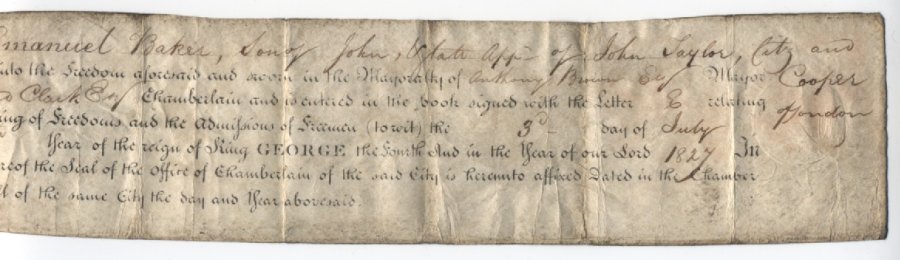 Emanuel Baker, Son of John, & late App. of John Taylor, City and
into the Freedom aforesaid and sworn in the Mayoralty of Anthony Brown Esq Mayor Cooper
Clark Esq Chamberlain and is entered in the book signed with the Letter E relating of London
ing of Freedoms and the Admissions of Freemen (to wit) the 3d day of July
Year of the reign of King GEORGE the Fourth And in the Year of our Lord 1827 In
reof the Seal of the Office of Chamberlain of the said City is hereunto affixed Dated in the Chamber
ll of the same City the day and Year abovesaid.